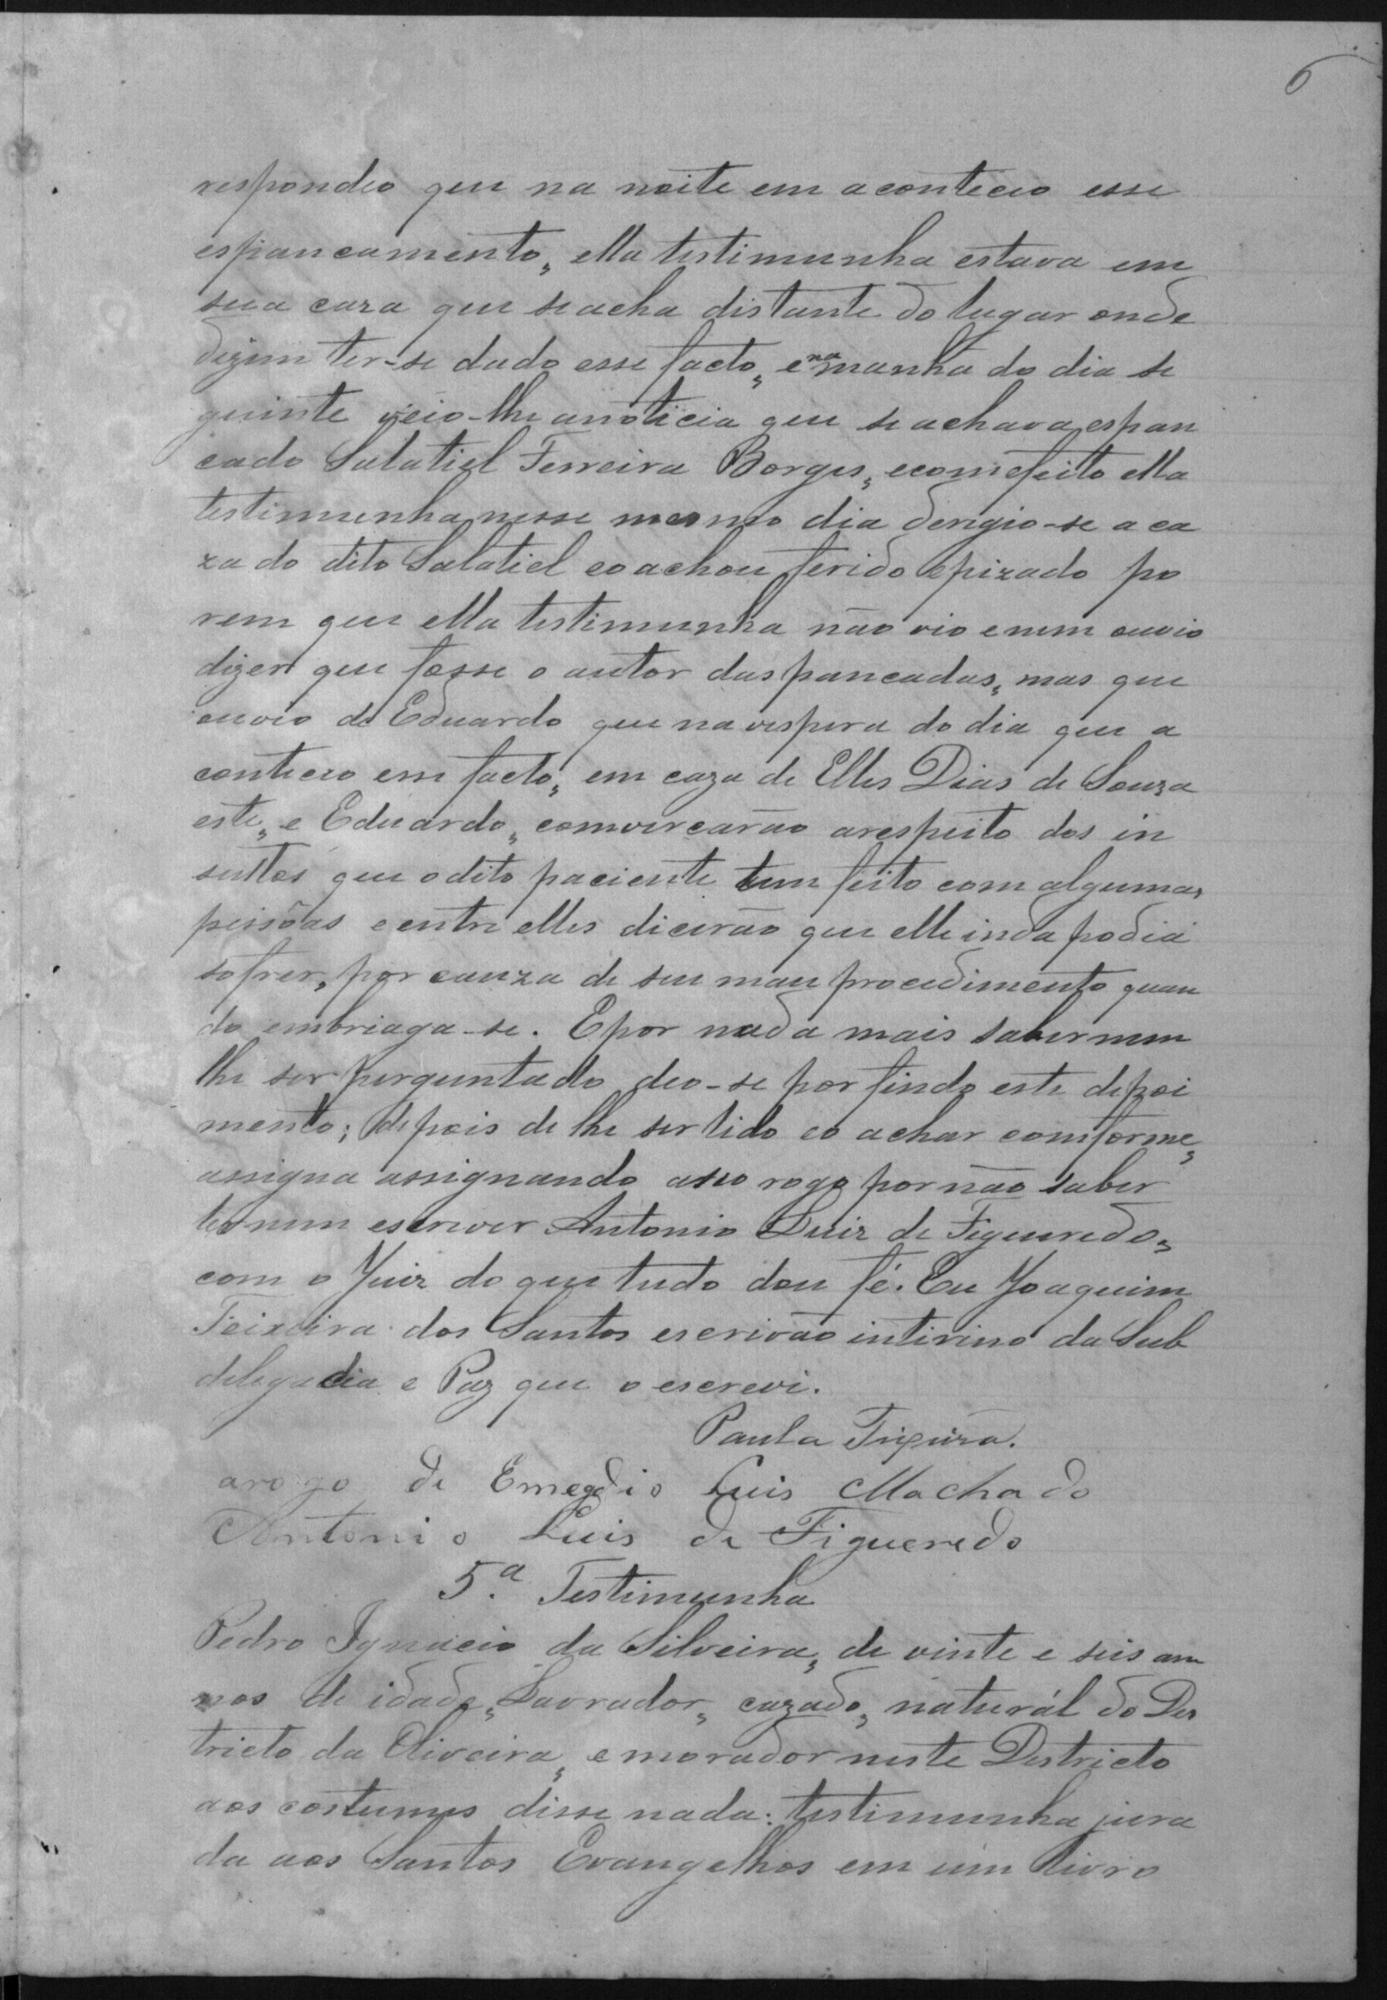 6
respondeo que na noite em aconteceo esse
espancamento, ella testimunha estava em
sua caza que se acha distante do lugar onde
dizem ter-se dado esse facto, e na manha do dia se
guinte veio-lhe anoticia que se achava espan
cado Salatiel Ferreira Borges, ecomefeito ella
testimunha nesse mesmo dia derigio-se a ca
za do dito Salatiel eo achou ferido e pizado po
rem que ella testimunha não vio enem ouvio
dizer que fosse o autor das pancadas, mas que
ouvio de Eduardo que na vespera do dia que a
conteceo em facto, em caza de Elles Dias de Souza
este, e Eduardo, comvercarão arespeito dos in
sultos que o dito paciente tem feito com algumas
peissôas e entre elles dicerão que elle inda podia
sofrer, por cauza de seu mau procedimento quan
do embriaga-se. E por nada mais saber nem
lhe ser perguntado deo-se por findo este depoi
mento; depois de lhe ser lido eo achar comforme,
assigna assignando aseo rogo por não saber
ler nem escrever Antonio Luiz de Figueredo,
com o Juiz do que tudo dou fé. Eu Joaquim
Teixeira dos Santos escrivão intirino da Sub
delegacia e Paz que o escrevi.
Paula
arogo de Emegdio Luis Machado
Antonio Luis de Figueredo
5.ª Testimunha
Pedro Ignacio da Silveira, de vinte e seis an
nos de idade, Lavrador, cazado, naturál do Des
tricto da Oliveira, e morador neste Destricto
aos costumes disse nada: testimunha jura
da aos Santos Evangelhos em um livro